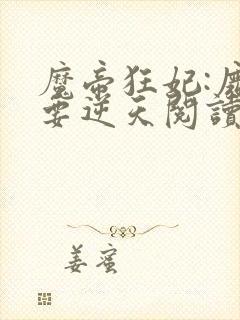 魔帝狂妃:魔
要逆天閱讀
姜蜜